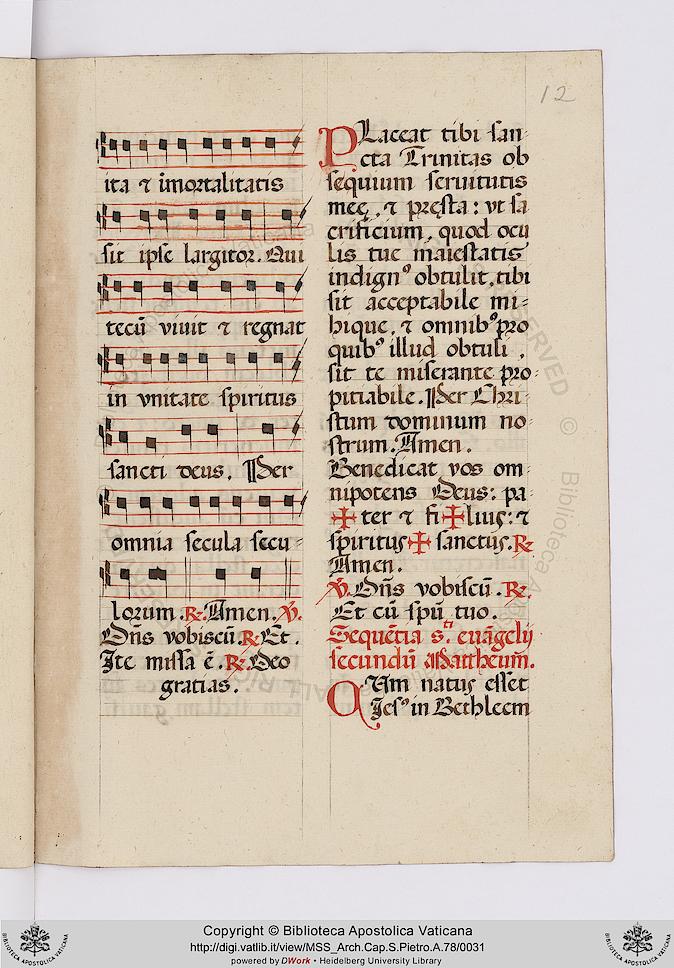 12
ita ⁊ im̄ortalitatis
sit ipse largitor. Qui
tecū viuit ⁊ regnat
in vnitate spiritus
sancti deus. Per
omnia secula secu-
lorum. ℟. Amen. ℣.
Dn̄s vobiscū. ℟. Et.
Ite missa ē. ℟. Deo
gratias.
PLaceat tibi san-
cta Trinitas ob
sequium seruitutis
meę, ⁊ pręsta: vt sa
crificium, quod ocu
lis tue maiestatis
indignꝰ obtulit, tibi
sit acceptabile mi-
hique, ⁊ omnibꝰ pro
quibꝰ illud obtuli,
sit te miserante pro-
pitiabile. Per Chri-
stum dominum no-
strum. Amen.
Benedicat vos om-
nipotens Deus: pa-
✠ ter ⁊ fi✠lius: ⁊
spiritus✠ sanctus. ℟
Amen.
℣. Dn̄s vobiscū. ℟.
Et cū spū tuo.
Sequētia s.ti euāgelij
secundū Mattheum̄.
CUm natus esset
Iesꝰ in Bethleem
RESERVED © Biblioteca Apostolica
ALL RIG
Copyright © Biblioteca Apostolica Vaticana
http://digi.vatlib.it/view/MSS_Arch.Cap.S.Pietro.A.78/0031
powered by DWork • Heidelberg University Library
BIBLIOTECA APOSTOLICA VATICANA
BIBLIOTECA APOSTOLICA VATICANA